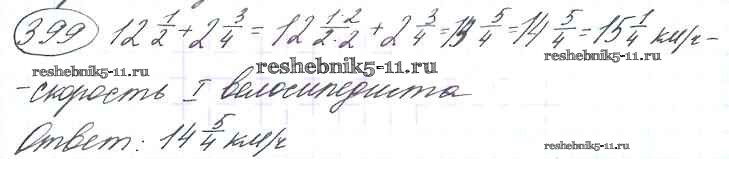 399 12 1/2 + 2 3/4 = 12 1·2/2·2 + 2 3/4 = 14 5/4 = 14 5/4 = 15 1/4 км/ч -
reshebnik5-11.ru
reshebnik5-11.ru
- скорость I велосипедиста
Ответ: 14 5/4 км/ч
reshebnik5-11.ru